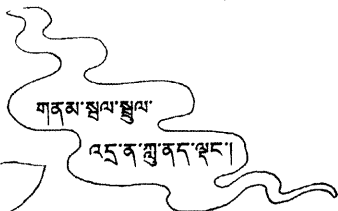 གནམ་སྦལ་སྦྲུལ་
འདྲ་ན་ཀླུ་ནད་ལྡང་།